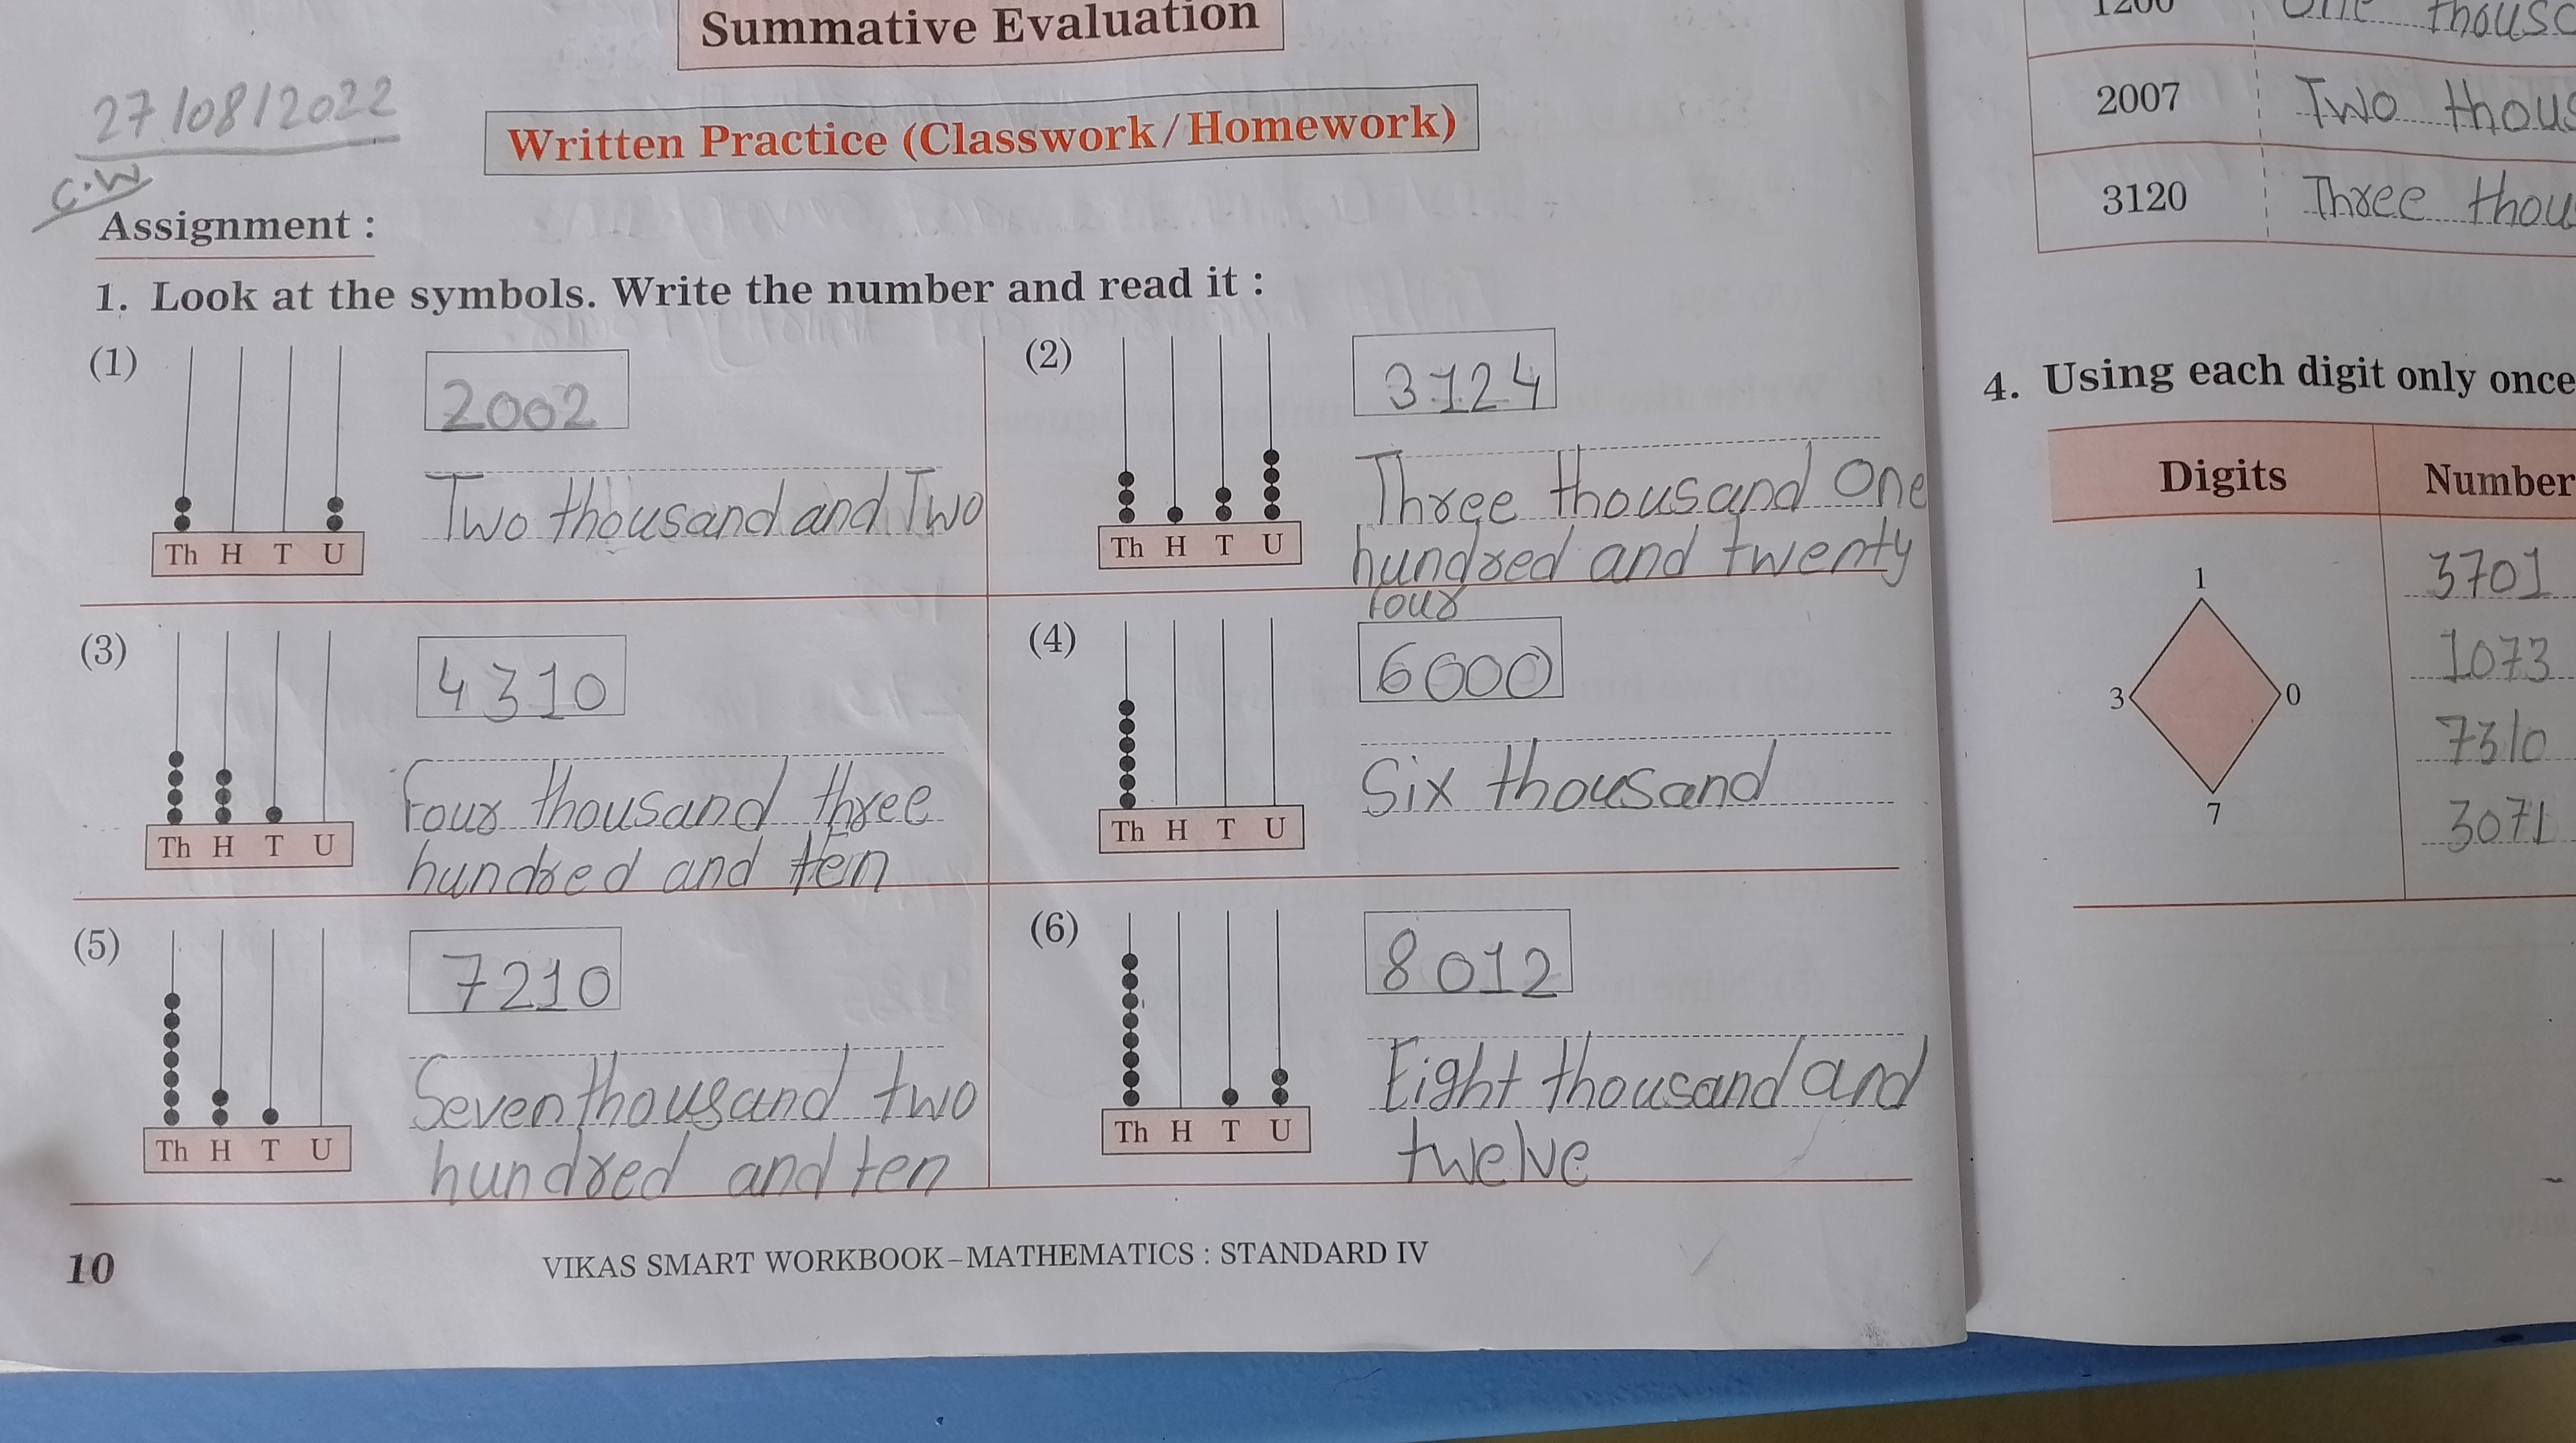 Summative Evaluation
27/08/2022
Written Practice (Classwork/Homework)
C.W
Assignment :
1. Look at the symbols. Write the number and read it :
(1)
2002
Two thousand and Two
Th H T U
(2)
3124
Three thousand One
hundred and twenty
four
Th H T U
(3)
4310
Four thousand three
hundred and ten
Th H T U
(4)
6000
Six thousand
Th H T U
(5)
7210
Seven thousand two
hundred and ten
Th H T U
(6)
8012
Eight thousand and
twelve
Th H T U
10
VIKAS SMART WORKBOOK–MATHEMATICS : STANDARD IV
1200 One
2007 Two
3120 Three
4. Using each digit only once
Digits Number
1
3 0
7
3701
1073
7310
3071